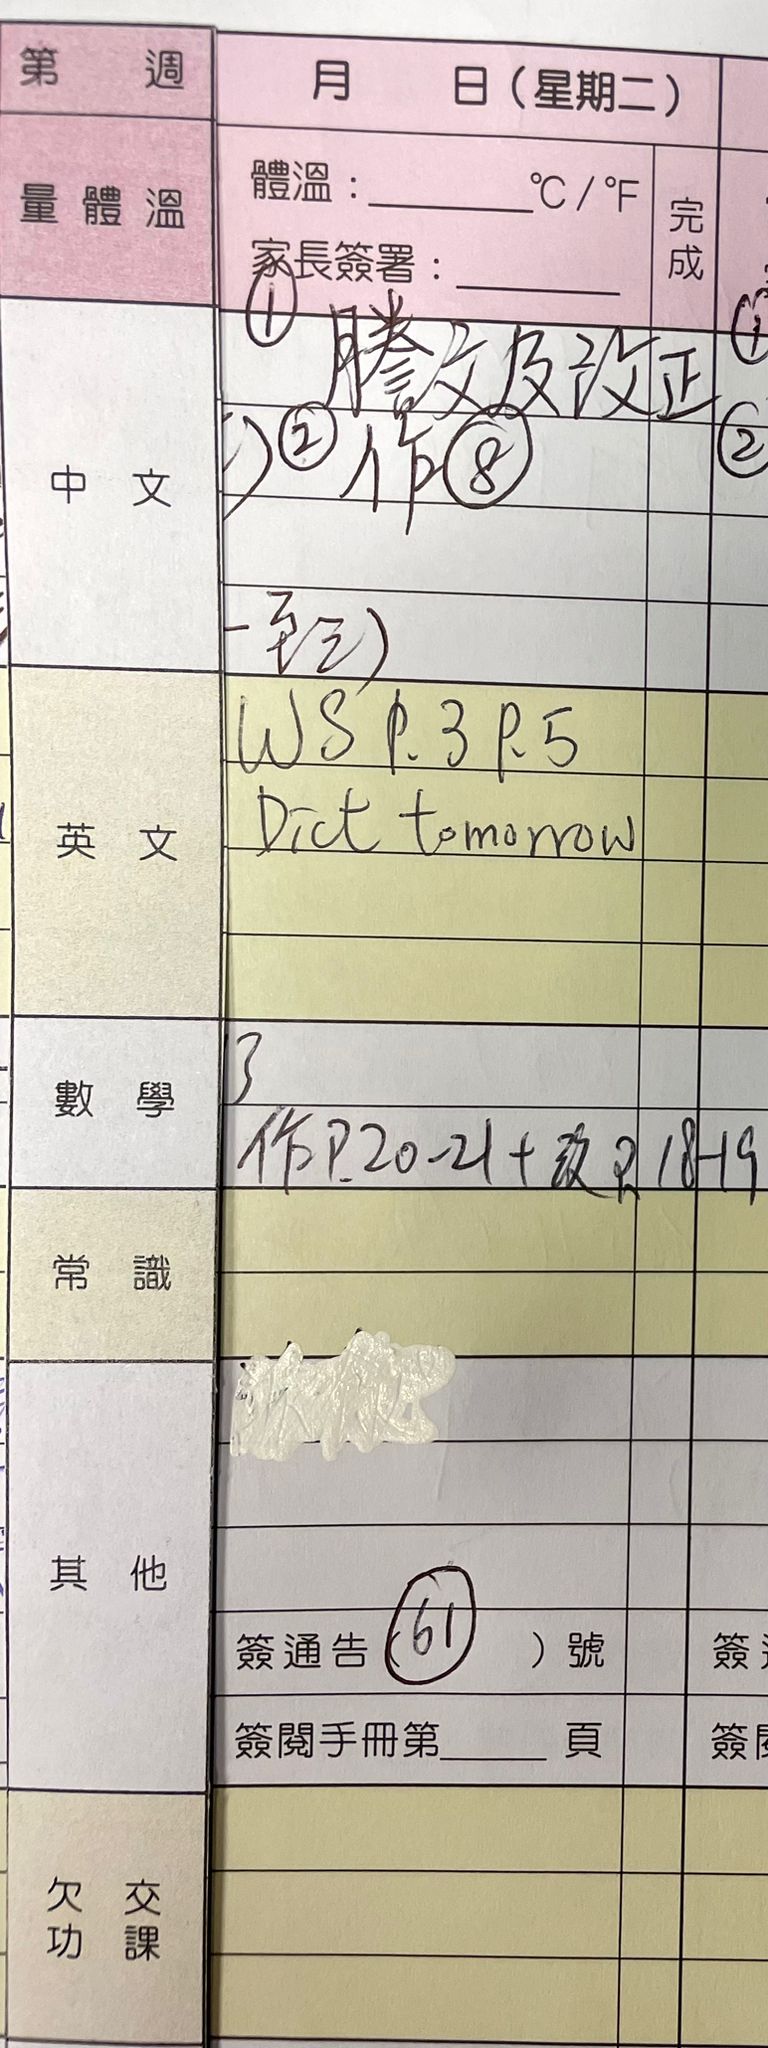 第 週 月 日(星期二)
量體溫 體溫:______°C/°F 完成
家長簽署:______
中文 ① 謄文及改正
② 作⑧
一至三)
英文 WS P.3 P.5
Dict tomorrow
數學 13
作P.20-21+改P.18-19
常識
其他
簽通告(61)號 簽
簽閱手冊第______頁 簽
欠交功課
① 
②